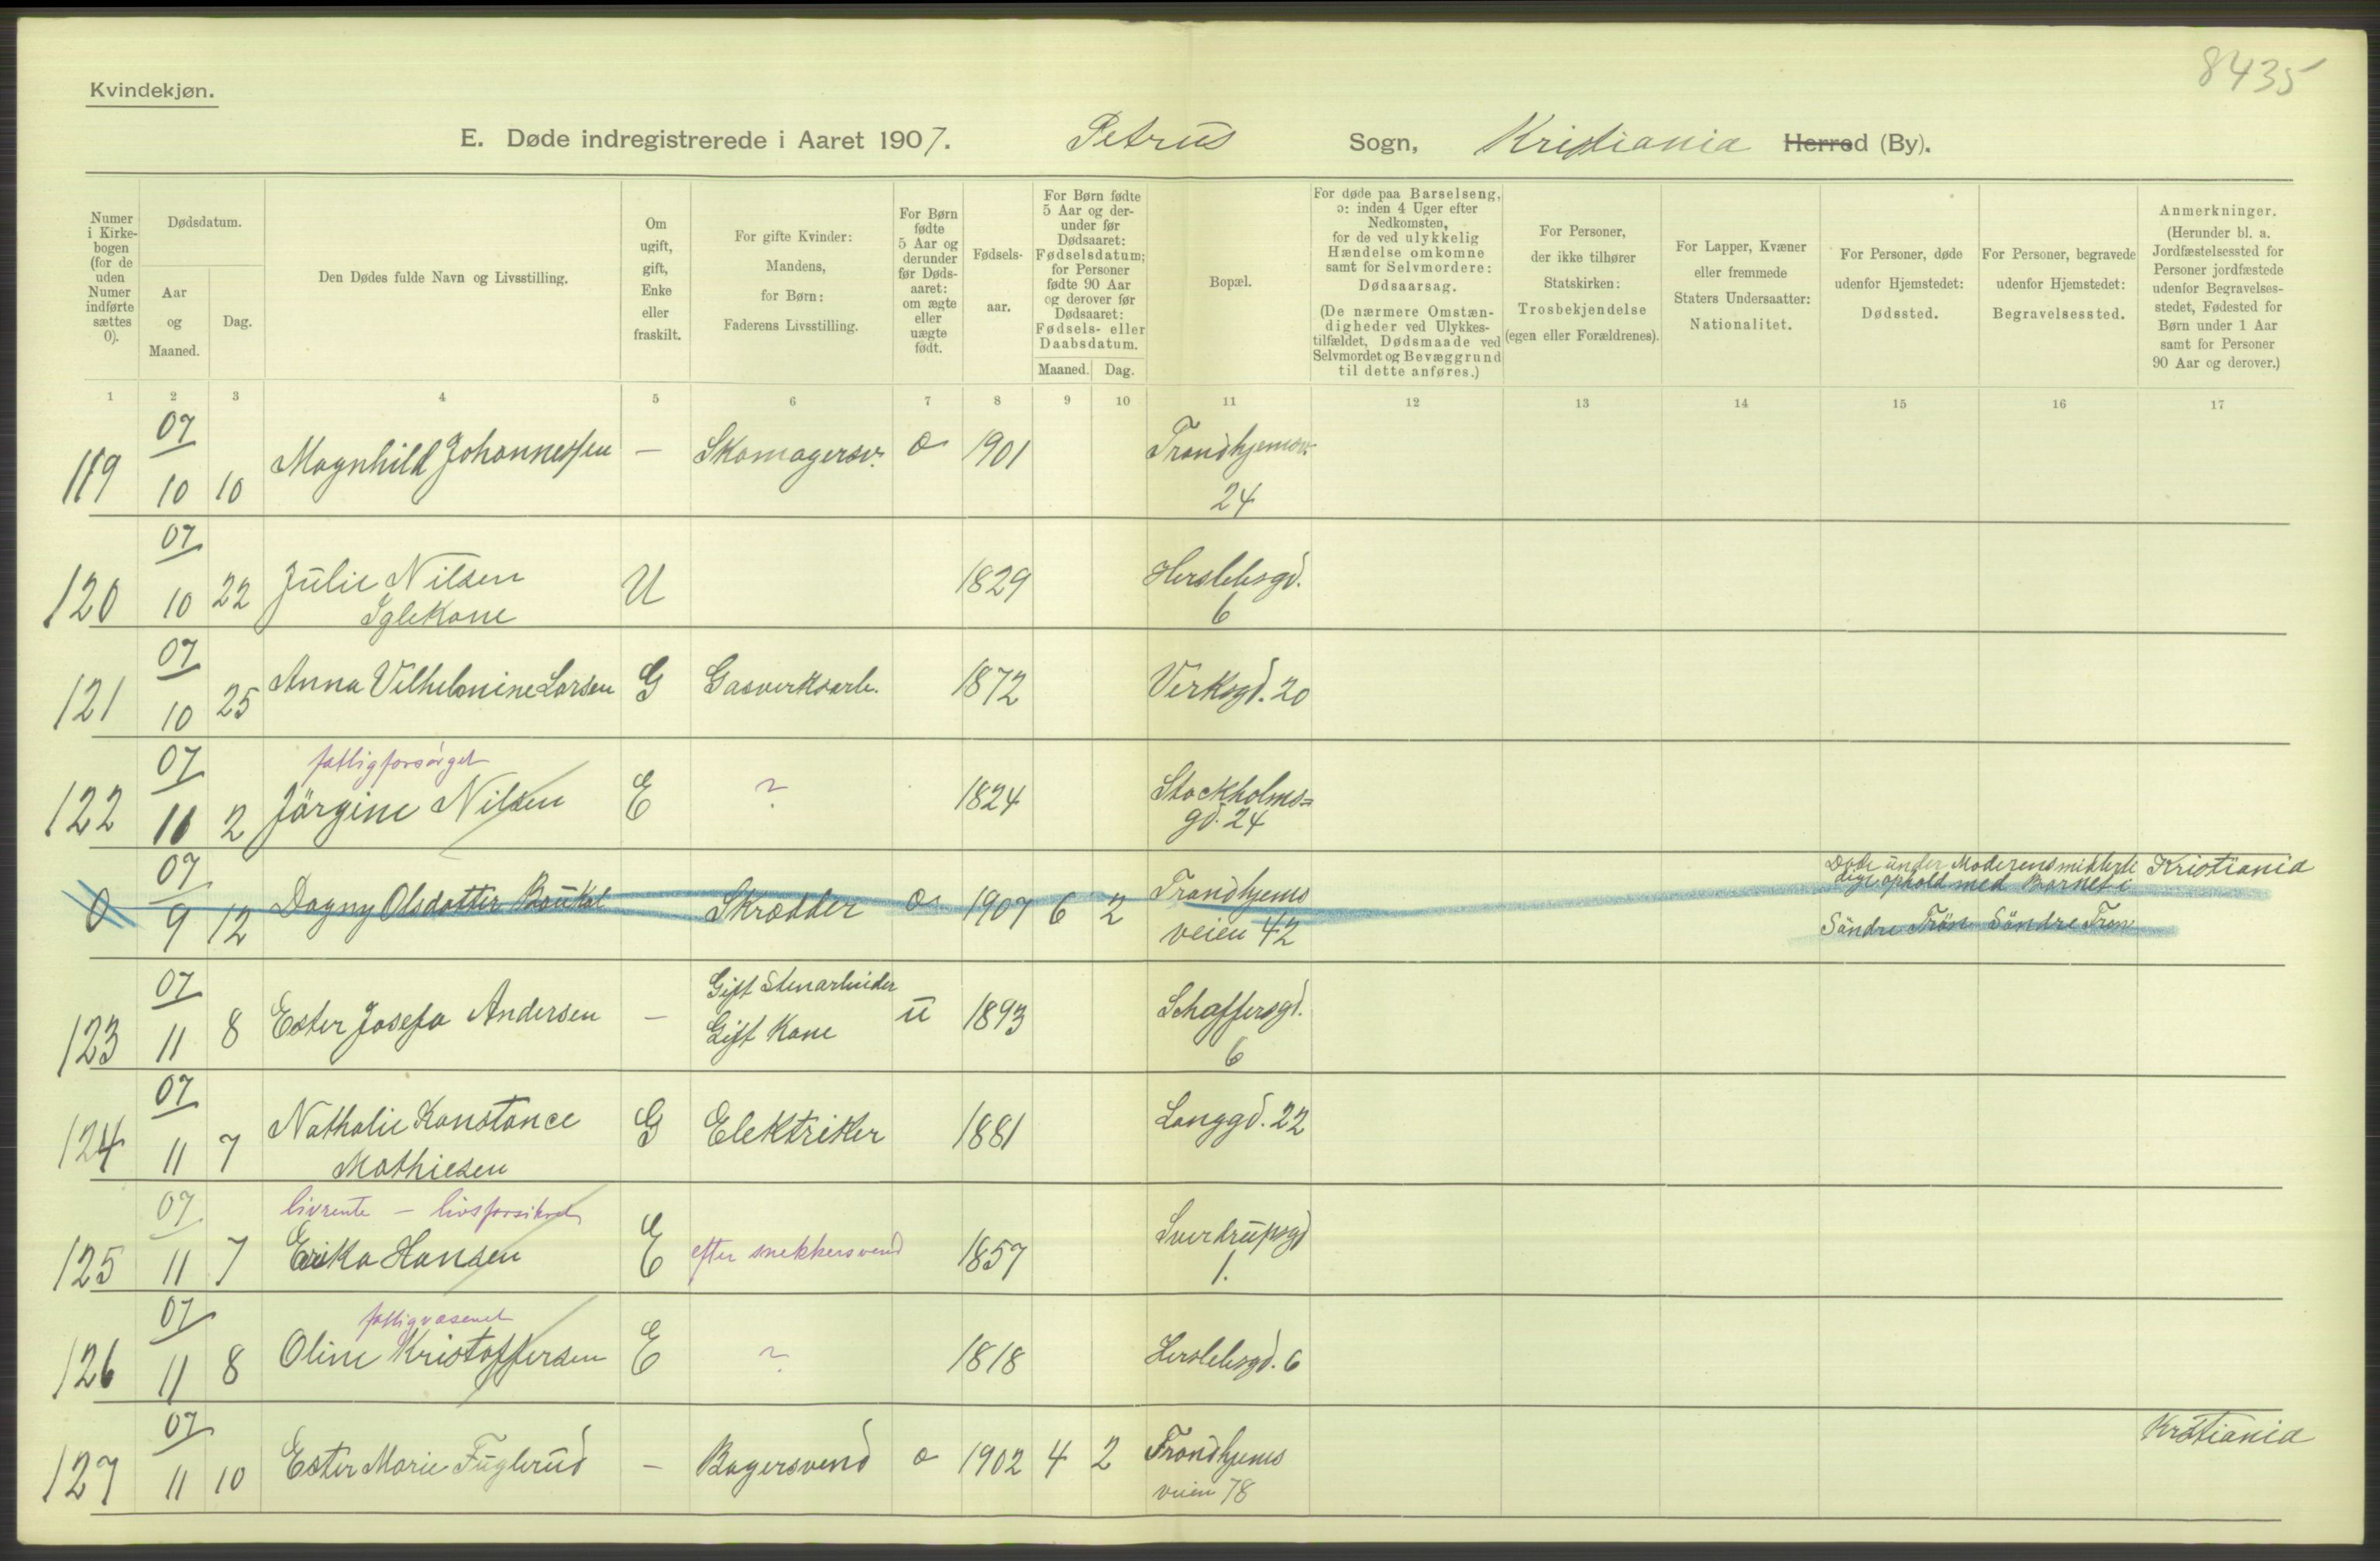 8435
Kvindekjøn.
E. Døde indregistrerede i Aaret 1907. Petrus Sogn, Kristiania Herred (By).
Numer
i Kirke-
bogen
(for de
uden
Numer
indførte
sættes
0).
Dødsdatum.
Aar
og
Maaned.
Dag.
Den Dødes fulde Navn og Livsstilling.
Om
ugift,
gift,
Enke
eller
fraskilt.
For gifte Kvinder:
Mandens,
for Børn:
Faderens Livsstilling.
For Børn
fødte
5 Aar og
derunder
før Døds-
aaret:
om ægte
eller
uægte
født.
Fødsels-
aar.
For Børn fødte
5 Aar og der-
under før
Dødsaaret:
Fødselsdatum;
for Personer
fødte 90 Aar
og derover før
Dødsaaret:
Fødsels- eller
Daabsdatum.
Maaned. Dag.
Bopæl.
For døde paa Barselseng,
ɔ: inden 4 Uger efter
Nedkomsten,
for de ved ulykkelig
Hændelse omkomne
samt for Selvmordere:
Dødsaarsag.
(De nærmere Omstæn-
digheder ved Ulykkes-
tilfældet, Dødsmaade ved
Selvmordet og Bevæggrund
til dette anføres.)
For Personer,
der ikke tilhører
Statskirken:
Trosbekjendelse
(egen eller Forældrenes).
For Lapper, Kvæner
eller fremmede
Staters Undersaatter:
Nationalitet.
For Personer, døde
udenfor Hjemstedet:
Dødssted.
For Personer, begravede
udenfor Hjemstedet:
Begravelsessted.
Anmerkninger.
(Herunder bl. a.
Jordfæstelsessted for
Personer jordfæstede
udenfor Begravelses-
stedet, Fødested for
Børn under 1 Aar
samt for Personer
90 Aar og derover.)
1 2 3 4 5 6 7 8 9 10 11 12 13 14 15 16 17
07
119 10 10 Magnhild Johannessen — Skomagersv. a 1901 Trondhjemsv.
24
07
120 10 22 Julie Nilsen U 1829 Herslebsgd.
Iglekone 6
07
121 10 25 Anna Vilhelmine Larsen G Gasverksarb. 1872 Verksgd. 20
07 fattigforsørget
122 11 2 Jörgine Nilsen E ? 1824 Stockholms=
gd. 24
07
0 9 12 Dagny Olsdatter Skrædder 1907 6 2 Trondhjems
veien 42
Døde under Moderens midlerti
dige ophold med Barnet i
Söndre Trön Söndre Tron
Kristiania
07
123 11 8 Ester Josefa Andersen — Gift Stenarbeider u 1893 Schaffersgd.
Gift Kone 6
07
124 11 7 Nathalie Konstance G Elektriker 1881 Langgd. 22
Mathiesen
07 livrente – livsforsikret
125 11 7 Erika Hansen E efter snekkersvend 1857 Sverdrupsgd
1.
07 fattigvæsenet
126 11 8 Oline Kristoffersen E ? 1818 Herslebsgd. 6
07
127 11 10 Ester Marie Fuglerud — Bagersvend a 1902 4 2 Trondhjems
veien 78
Kristiania